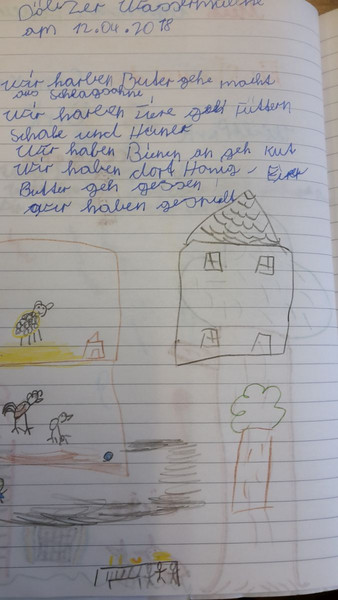 Dölitzer Wassermühle
am 12.04.2018
Wir harben Buter gehe macht
aus Schlagsahne
Wir harben Tiere geh Füttern
Schafe und Hüner
Wir haben Bienen an geh kut
Wir haben dort Honig -
Butter geh gessen!
wir haben gespielt